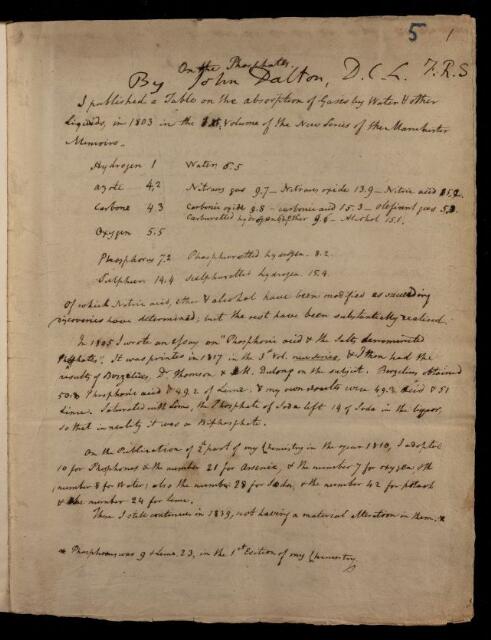 5 1
On the Phosphates.
By John Dalton, D.C.L. F.R.S
I published a Table on the absorption of Gases by Water & other
Liquids, in 1803 in the 1st. Volume of the New Series of the Manchester
Memoirs.
Hydrogen 1 Water 6.5
Azote 4.2 Nitrous gas 9.7 — Nitrous oxide 13.9 — Nitric acid
Carbone 4.3 Carbonic oxide 9.8 — carbonic acid 15.3 — olefiant gas 5.3
Carburetted hydrogen Ether 9.6 — Alcohol 15.1.
Oxygen 5.5
Phosphorus 7.2 Phosphuretted hydrogen 8.2
Sulphur 14.4 Sulphuretted hydrogen 15.4
Of which Nitric acid, ether & alcohol have been modified as succeeding
discoveries have determined; but the rest have been substantially realised.
In 1805 I wrote an essay on "Phosphoric acid & the Salts denominated
Phosphates". It was printed in 1817 in the 3d Vol. & I then had the
results of Berzelius, Dr Thomson & M. Dulong on the subject. Berzelius obtained
50.8 Phosphoric acid & 49.2 of Lime. & my own results were 49. acid & 51
Lime. Saturated with Lime, the Phosphate of Soda left 14 of Soda in the liquor,
so that in reality it was a Biphosphate.
On the Publication of 2d part of my Chemistry in the year 1810, I adopted
10 for Phosphorus & the number 21 for Arsenic, & the number 7 for oxygen, & the
number 8 for Water; also the number 28 for Soda, & the number 42 for potash
& the number 24 for lime.
These I still continue in 1839, not having a material alteration in them. *
* Phosphorus was 9 & Lime 23, in the 1st Edition of my Chemistry.